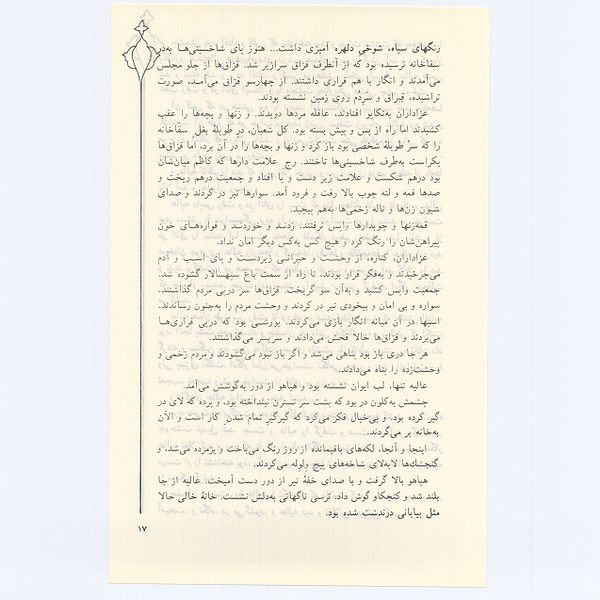 رنگهای سیاه، شوخیِ دلهره آمیزی داشت... هنوز پای شاخسینی‌ها به‌در
سقاخانه نرسیده بود که از آنطرف قزاق سرازیر شد. قزاق‌ها از جلو مجلس
می‌آمدند و انگار با هم قراری داشتند. از چهارسو قزاق می‌آمد، صورت
تراشیده، قبراق و سَردُم روی زمین نشسته بودند.
عزاداران به‌تکاپو افتادند. عاقله مردها دویدند. و زنها و بچه‌ها را عقب
کشیدند اما راه از پس و پیش بسته بود. کل شعبان، درِ طویلهٔ بغل سقاخانه
را که سرْ طویلهٔ شخصی بود باز کرد و زنها و بچه‌ها را در آن برد. اما قزاق‌ها
یکراست به‌طرف شاخسینی‌ها تاختند. رج علامت دارها که کاظم میان‌شان
بود درهم شکست و علامت زیر دست و پا افتاد و جمعیت درهم ریخت و
صدها قمه و لته چوب بالا رفت و فرود آمد. سوارها تیر در کردند و صدای
شیون زن‌ها و ناله زخمی‌ها به‌هم پیچید.
قمه‌زنها و چوبدارها واپس نرفتند. زدند و خوردند و فواره‌های خون
پیراهن‌شان را رنگ کرد و هیچ کس به‌کس دیگر امان نداد.
عزاداران، کناره، از وحشت و حیرانی زیردست و پای اسب و آدم
می‌چرخیدند و به‌فکر فرار بودند، تا راه از سمت باغ سپهسالار گشوده شد.
جمعیت واپس کشید و به‌آن سو گریخت. قزاق‌ها سر درپی مردم گذاشتند.
سواره و بی امان و بیخودی تیر در کردند و وحشت مردم را به‌جنون رساندند.
اسبها در آن میانه انگار بازی می‌کردند. یورشـی بود که درپی فراری‌ها
می‌بردند و قزاق‌ها حالا فحش می‌دادند و سربسر می‌گذاشتند.
هر جا دری باز بود پناهی می‌شد و اگر باز نبود می‌گشودند و مردم زخمی و
وحشت‌زده را پناه می‌دادند.
عالیه تنها، لب ایوان نشسته بود و هیاهو از دور به‌گوشش می‌آمد.
چشمش به‌کلون در بود که پشت سر نسترن نینداخته بود، و پرده که لای در
گیر کرده بود. و بی‌خیال فکر می‌کرد که گیرگیر تمام شدن کار است و الآن
به‌خانه بر می‌گردند.
اینجا و آنجا، لکه‌های باقیمانده از روز رنگ می‌باخت و پژمرده می‌شد، و
گنجشک‌ها لابه‌لای شاخه‌های پیچ ولوله می‌کردند.
هیاهو بالا گرفت و با صدای خفهٔ تیر از دور دست آمیخت. عالیه از جا
بلند شد و کنجکاو گوش داد. ترسی ناگهانی به‌دلش نشست. خانهٔ خالی حالا
مثل بیابانی درندشت شده بود.
۱۷